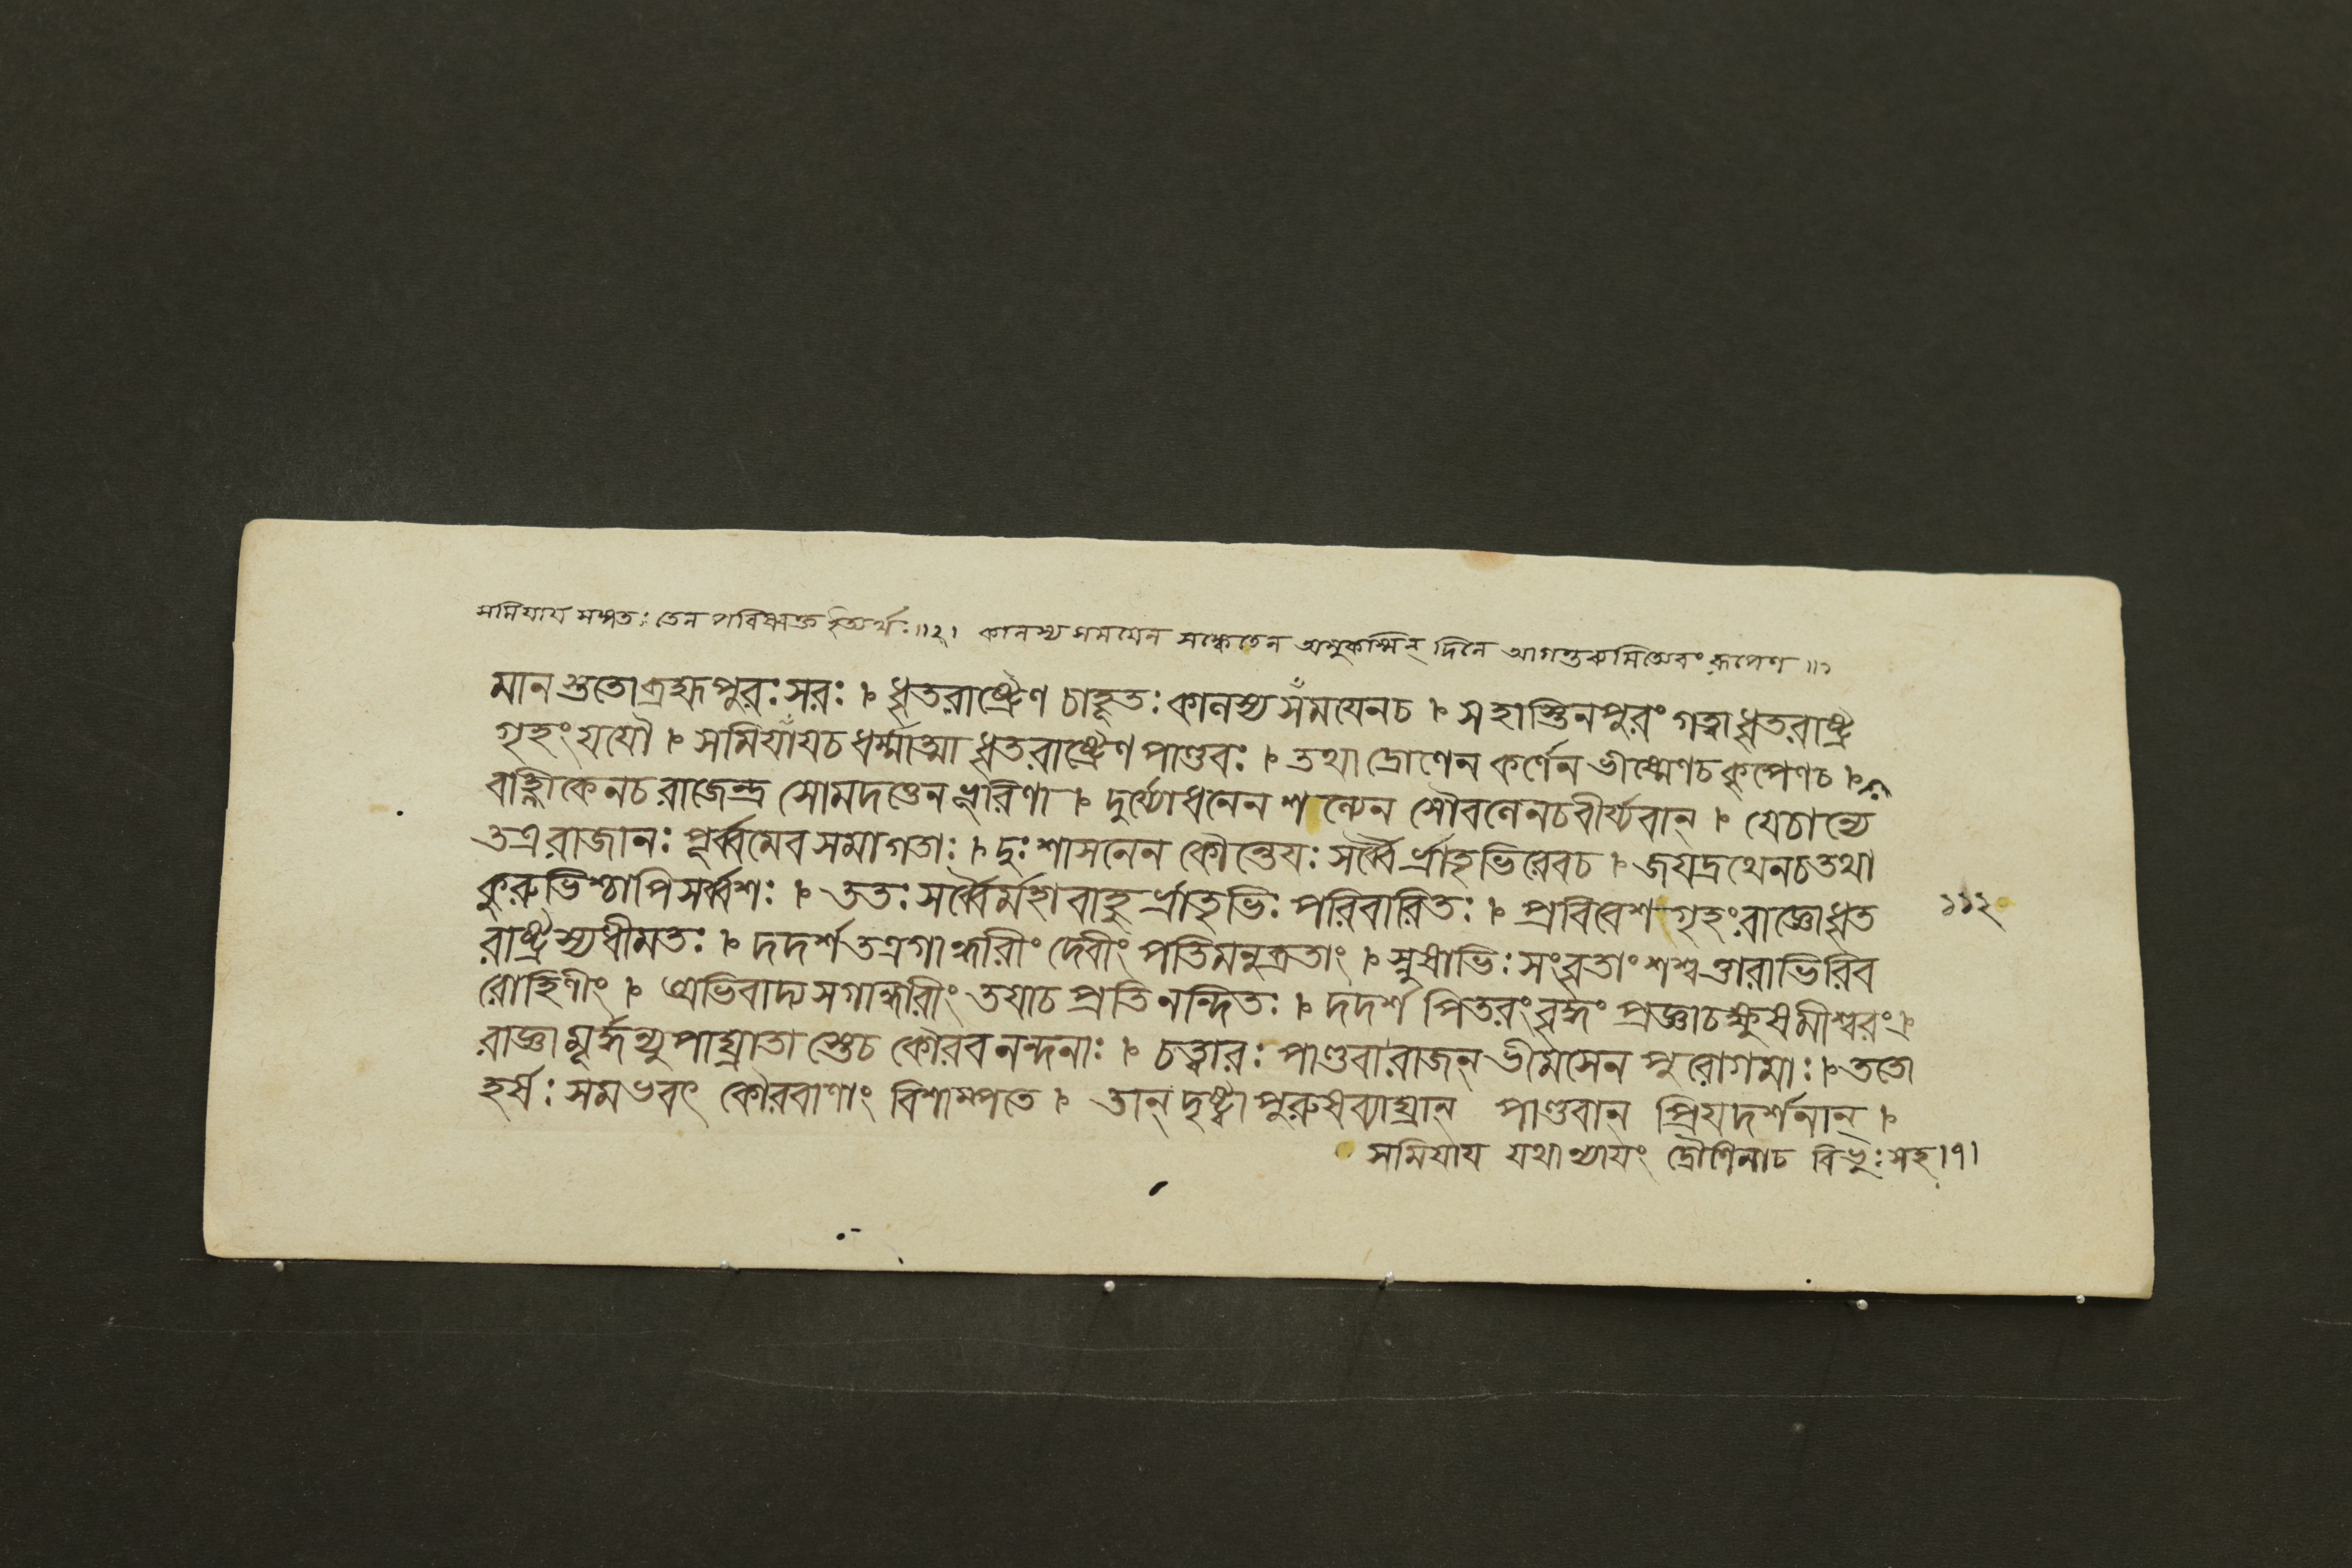 সমিযায সঙ্গতঃ তেন পরিষ্বক্ত ইত্যর্থঃ॥২। কালস্য সময়েন সঙ্কেতেন অমুকস্মিন্ দিনে আগন্তব্যমিত্যেবং রূপেণ॥১
মানস্ততো ব্রহ্মপুরঃসরঃ । ধৃতরাষ্ট্রেণ চাহূতঃ কালস্য সময়েনচ । সহাস্তিনপুরং গত্বা ধৃতরাষ্ট্র
গৃহং যযৌ । সমিযাযচ ধর্ম্মাত্মা ধৃতরাষ্ট্রেণ পাণ্ডবঃ । তথা দ্রোণেন কর্ণেন ভীষ্মেণচ কৃপেণচ ।
বাহ্লীকেনচ রাজেন্দ্র সোমদত্তেন ভূরিণা । দুর্য্যোধনেন শল্যেন সৌবলেনচ বীর্য্যবান্ । যেচান্যে
তত্র রাজানঃ পূর্ব্বমেব সমাগতাঃ । দুঃশাসনেন কৌন্তেযঃ সর্ব্বৈর্ভ্রাতৃভিরেবচ । জযদ্রথেনচ তথা
কুরুভিশ্চাপি সর্ব্বশঃ । ততঃ সর্ব্বৈর্মহাবাহু র্ভ্রাতৃভিঃ পরিবারিতঃ । প্রবিবেশ গৃহং রাজ্ঞো ধৃত
রাষ্ট্রস্য ধীমতঃ । দদর্শ তত্র গান্ধারীং দেবীং পতিমনুব্রতাং । স্নুষাভিঃ সংবৃতাং শশ্বত্তারাভিরিব
রোহিণীং । অভিবাদ্য সগান্ধারীং তযাচ প্রতিনন্দিতঃ । দদর্শ পিতরং বৃদ্ধং প্রজ্ঞাচক্ষুষমীশ্বরং ।
রাজ্ঞা মূর্দ্ধন্যুপাঘ্রাতা স্তেচ কৌরবনন্দনাঃ । চত্বারঃ পাণ্ডবা রাজন্ ভীমসেন পুরোগমাঃ । ততো
হর্ষঃ সমভবৎ কৌরবাণাং বিশাম্পতে । তান্ দৃষ্ট্বা পুরুষব্যাঘ্রান্ পাণ্ডবান্ প্রিযদর্শনান্ ।
সমিযায যথান্যাযং দ্রৌণিনাচ বিভুঃ সহ।৭।
১১২